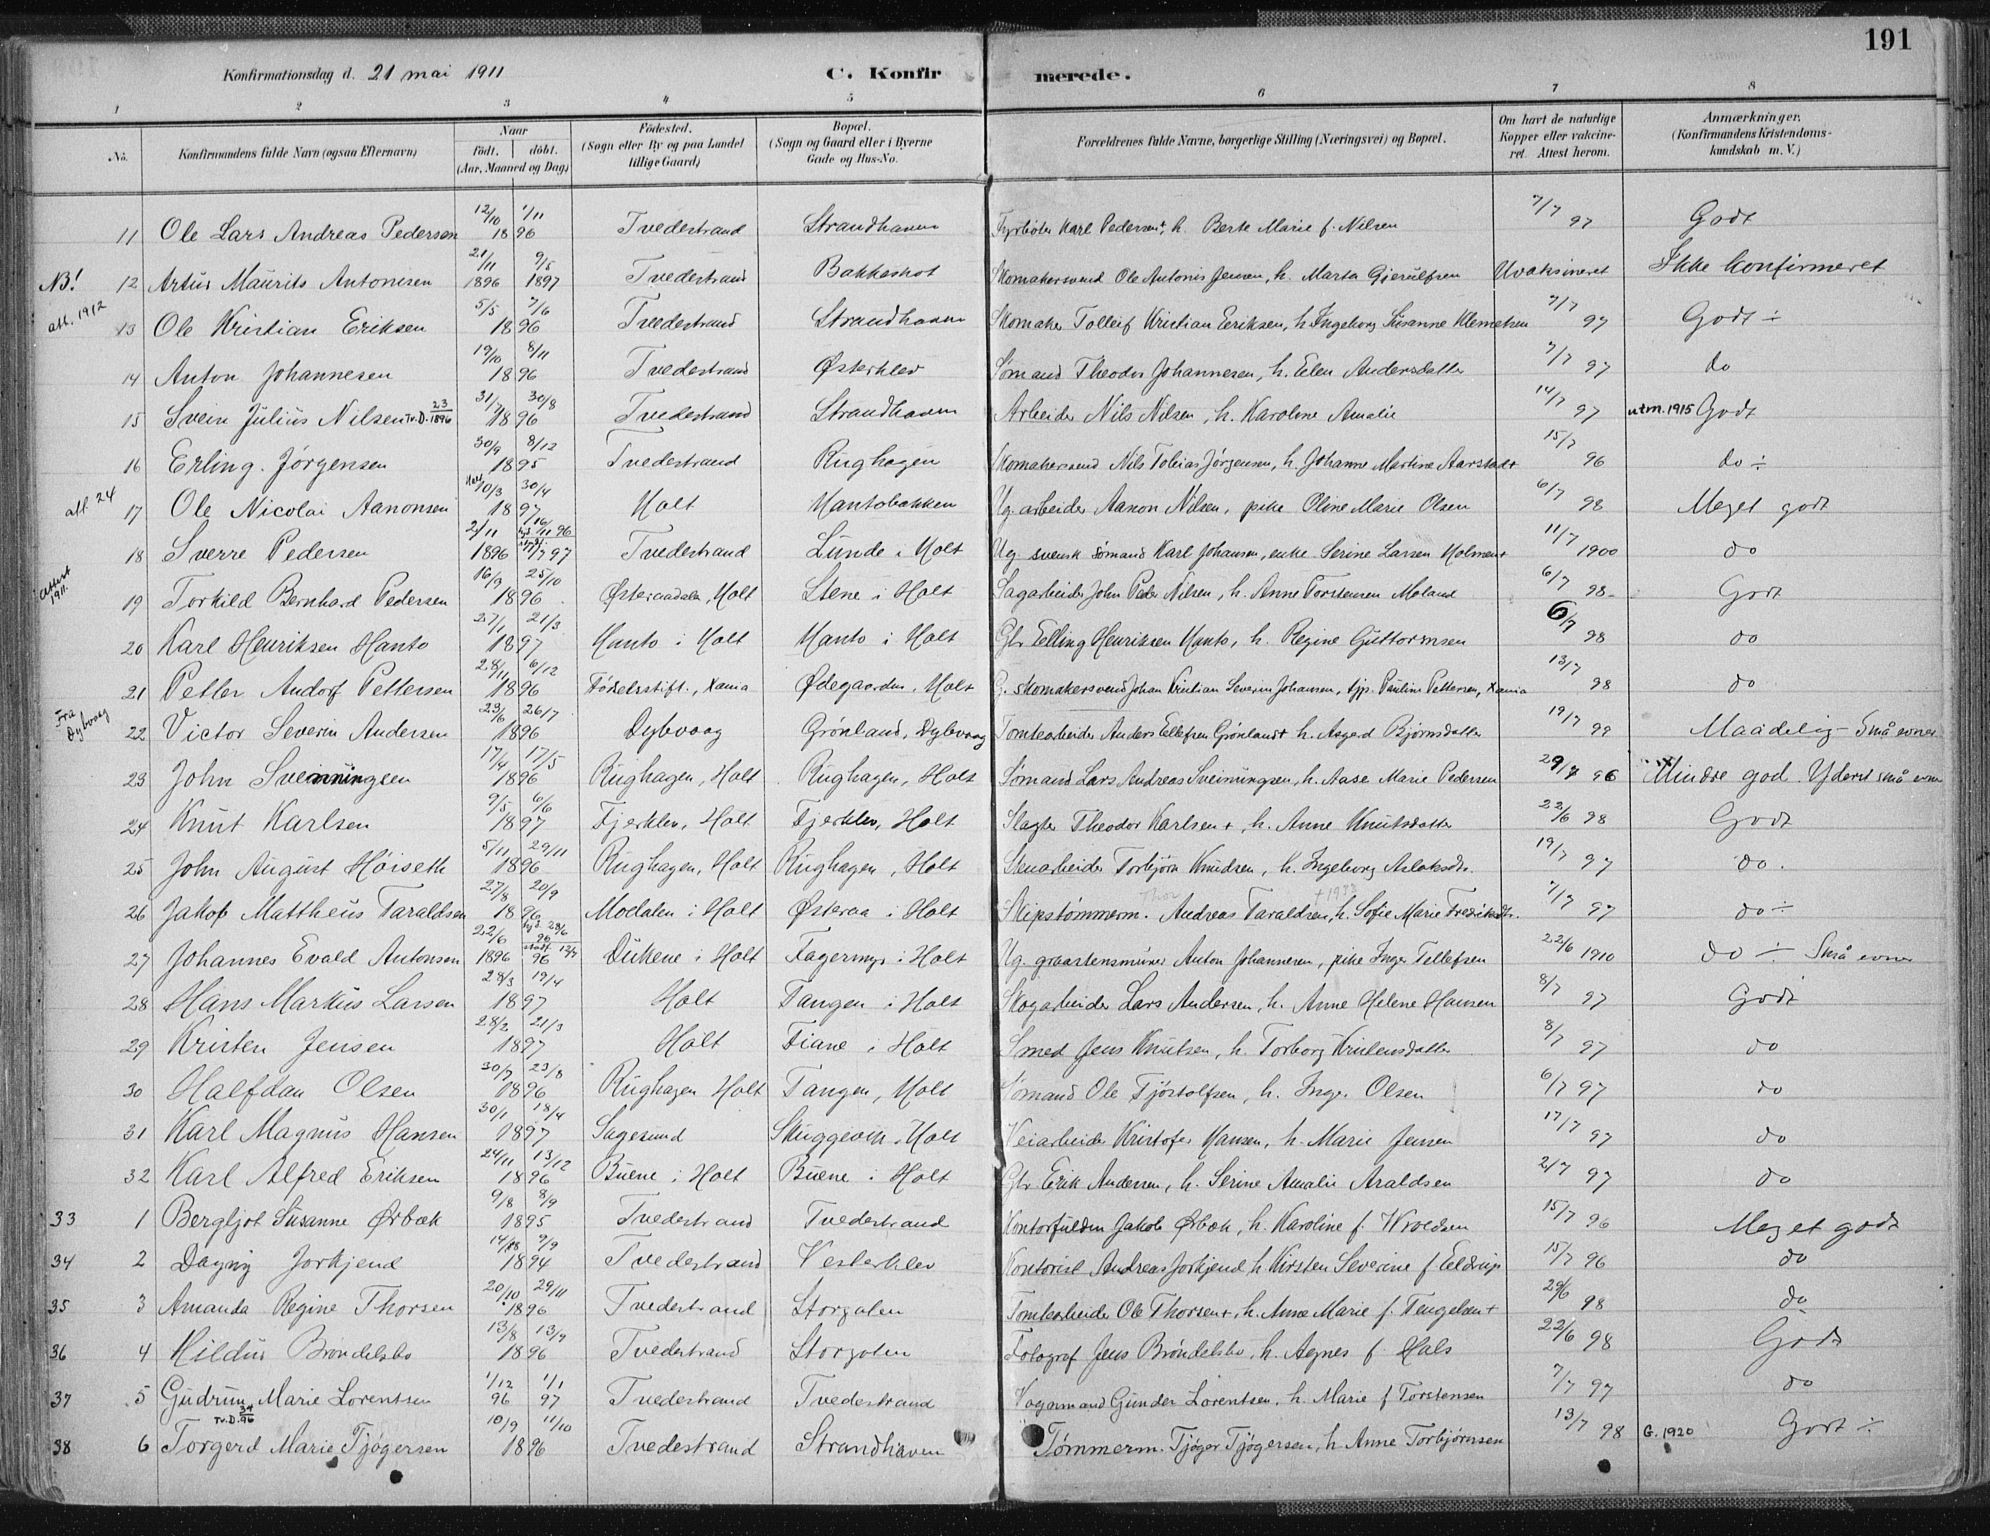 191
Konfirmationsdag d. 21 mai 1911 C. Konfirmerede.
1 2 3 4 5 6 7 8
No. Konfirmandens fulde Navn (ogsaa Efternavn) Naar født. døbt. (Aar, Maaned og Dag) Fødested. (Sogn eller By og paa Landet tillige Gaard) Bopæl. (Sogn og Gaard eller i Byerne Gade og Hus-No. Forældrenes fulde Navne, borgerlige Stilling (Næringsvei) og Bopæl. Om havt de naturlige Kopper eller vakcineret. Attest herom. Anmærkninger. (Konfirmandens Kristendomskundskab m. V.)
11 Ole Lars Andreas Pedersen 12/10 1/11 1896 Tvedestrand Strandhaven Fyrbøter Karl Pedersen+, h. Berte Marie f. Nilsen 7/7 97 Godt
NB! 12 Artur Maurits Antonisen 21/11 1896 9/5 1897 Tvedestrand Bakkeskot Skomakersvend Ole Antonis Jensen, h. Marta Gjerulfsen Uvaksineret Ikke konfirmeret
att. 1912 13 Ole Kristian Eriksen 5/5 7/6 1896 Tvedestrand Strandhaven Skomaker Tolleif Kristian Eriksen, h. Ingeborg Susanne Klemetsen 7/7 97 Godt ÷
14 Anton Johannesen 19/10 8/11 1896 Tvedestrand Østerklev Sømand Theodor Johannesen, h. Elen Andersdatter 7/7 97 do
15 Svein Julius Nilsen Tv.D. 23/1896 31/7 30/8 1896 Tvedestrand Strandhaven Arbeider Nils Nilsen, h. Karoline Amalie 14/7 97 utm. 1915 Godt
16 Erling Jørgensen 30/9 8/12 1895 Tvedestrand Rughagen Skomakersvend Nils Tobias Jørgensen, h. Johanne Martine Aarstadt 15/7 96 do ÷
att. 24 17 Ole Nicolai Aanonsen 10/3 30/4 1897 Holt Hantobakken Ug. arbeider Aanon Nilsen, pike Oline Marie Olsen 6/7 98 Meget godt
18 Sverre Pedersen 2/11 1896 97 Tvedestrand Lunde i Holt Ug. svensk sømand Karl Johansen, enke Serine Larsen Holmen+ 11/7 1900 do
attest 1911. 19 Torkild Bernhard Pedersen 16/9 25/10 1896 Østeraadalen, Holt Stene i Holt Sagarbeider John Peder Nilsen, h. Anne Torstensen Moland 6/7 98 Godt
20 Karl Henriksen Hanto 27/1 21/3 1897 Hanto i Holt Hanto i Holt Gbr. Elling Henriksen Hanto, h. Regine Guttormsen 6/7 98 do
21 Petter Andorf Pettersen 28/11 6/12 1896 Fødselsstift., Xania Ødegaarden, Holt G. skomakersvend Johan Kristian Severin Johansen, tjp. Pauline Pettersen, Xania 13/7 98 do
Fra Dybvaag 22 Victor Severin Andersen 23/6 26/7 1896 Dybvaag Grønland, Dybvaag Tomtearbeider Anders Ellefsen Grønland+ h. Asgerd Bjørnsdatter 19/7 99 Maadelig - små evner
23 John Sveinungsen 17/4 17/5 1896 Rughagen, Holt Rughagen, Holt Sømand Lars Andreas Sveinungsen, h. Aase Marie Pedersen 29/7 96 Mindre god. Yderst små evner
24 Knut Karlsen 9/5 6/6 1897 Fjerklev, Holt Fjerklev, Holt Slagter Theodor Karlsen+, h. Anne Knutsdatter 22/6 98 Godt
25 John August Høiseth 5/11 29/11 1896 Rughagen, Holt Rughagen, Holt Stenarbeider Torbjørn Knudsen, h. Ingeborg Aslaksdtr. 19/7 97 do.
26 Jakob Mattheus Taraldsen 27/8 20/9 1896 Modalen i Holt Østeraa i Holt Skipstømmerm. Thor Andreas Taraldsen, +1933 h. Sofie Marie Fredriksdtr. 7/7 97 do ÷
27 Johannes Evald Antonsen 22/6 1896 96 Dukene i Holt Fagermyr i Holt Ug. graastensmurer Anton Johannesen, pike Inger Tellefsen 22/6 1910 do ÷ Små evner
28 Hans Markus Larsen 28/3 19/4 1897 Holt Tangen i Holt Skogarbeider Lars Andersen, h. Anne Helene Hansen 8/7 97 Godt
29 Kristen Jensen 28/2 21/3 1897 Holt Fiane i Holt Smed Jens Knutsen, h. Torborg Kristensdatter 8/7 97 do
30 Halfdan Olsen 30/7 23/8 1896 Rughagen Holt Tangen, Holt Sømand Ole Tjøstolfsen, h. Inger Olsen 6/7 97 do
31 Karl Magnus Hansen 30/1 18/4 1897 Sagesund Skuggevik, Holt Veiarbeider Kristofer Hansen, h. Marie Jensen 17/7 97 do
32 Karl Alfred Eriksen 24/11 13/12 1896 Buene i Holt Buene i Holt Gbr. Erik Andersen, h. Serine Amalie Araldsen 2/7 97 do
33 1 Bergljot Susanne Ørbæk 9/8 8/9 1895 Tvedestrand Tvedestrand Kontorfuldm Jakob Ørbæk, h. Karoline f. Wroldsen 15/7 96 Meget godt
34 2 Dagny Jorkjend 9/9 1894 Tvedestrand Vesterklev Kontorist Andreas Jorkjend h. Kirsten Severine f. Eldrup 15/7 96 do
35 3 Amanda Regine Thorsen 20/10 29/11 1896 Tvedestrand Storgaten Tomtearbeider Ole Thorsen+, h. Anne Marie f. Tengelsen+ 29/6 98 do
36 4 Hildur Brøndelsbo 13/8 13/9 1896 Tvedestrand Storgaten Fotograf Jens Brøndelsbo, h. Agnes f. Hals 22/6 98 Godt
37 5 Gudrun Marie Lorentsen 1/12 96 1/1 97 Tvedestrand Tvedestrand Vognmand Gunder Lorentsen, h. Marie f. Torstensen 7/7 97 do
38 6 Torgerd Marie Tjøgersen Tv.D. 34/96 10/9 11/10 1896 Tvedestrand Strandhaven Tømmerm. Tjøger Tjøgersen, h. Anne Torbjørnsen 13/7 98 G. 1920 Godt ÷